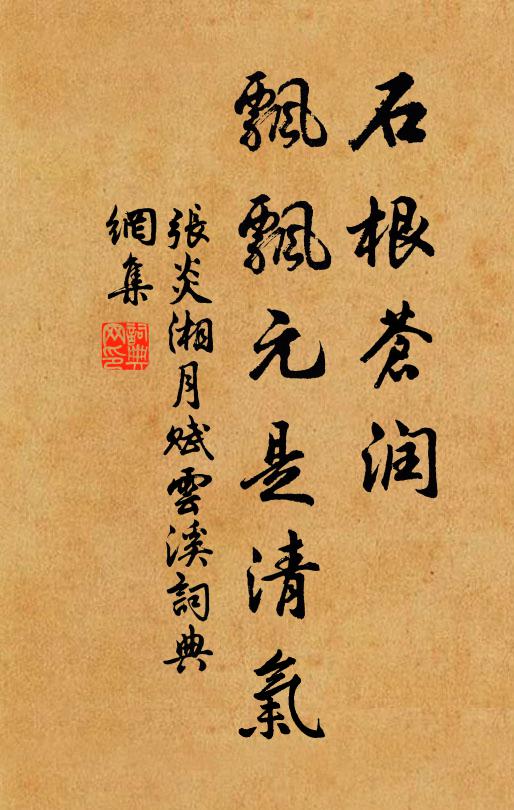 石根蒼润
飄飄元是清氣
張炎湘月賦雲溪詞典
網集
詞典
网印